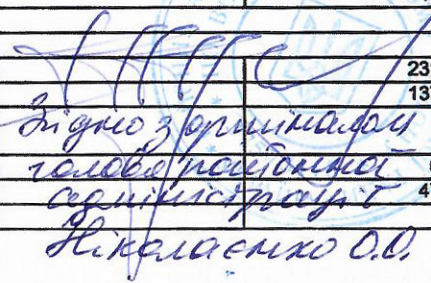 23
13
Згідно з оригіналом
голова районної
адміністрації
4
Ніколаєнко О.О.